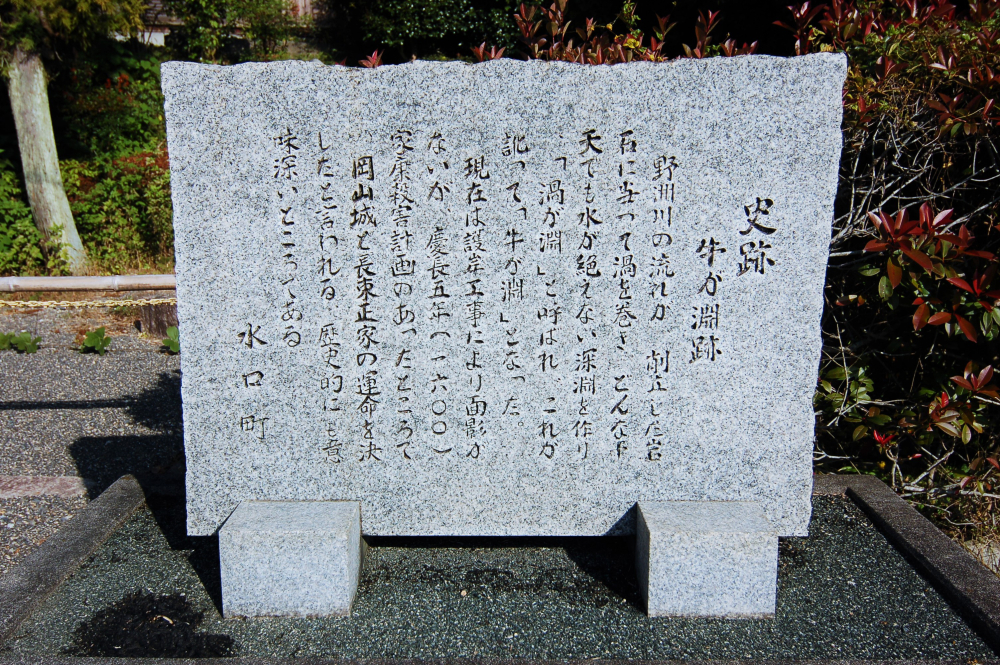 史跡
牛が淵跡
野洲川の流れが 削立した岩
石に当って渦を巻き どんな旱
天でも水が絶えない深淵を作り
、「渦が淵」と呼ばれ、これが
訛って「牛が淵」となった。
現在は護岸工事により面影が
ないが、慶長五年(一六〇〇)
家康殺害計画のあったところで
、岡山城と長束正家の運命を決
したと言われる。歴史的にも意
味深いところである
水口町